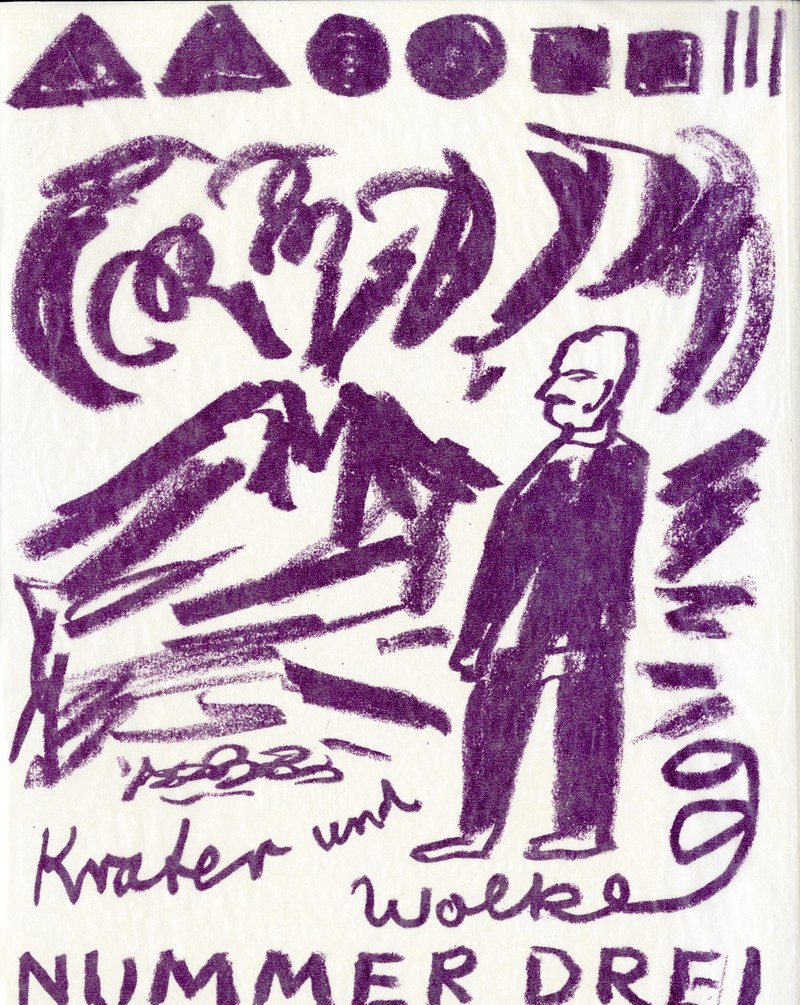 Krater und
Wolke
NUMMER DREI